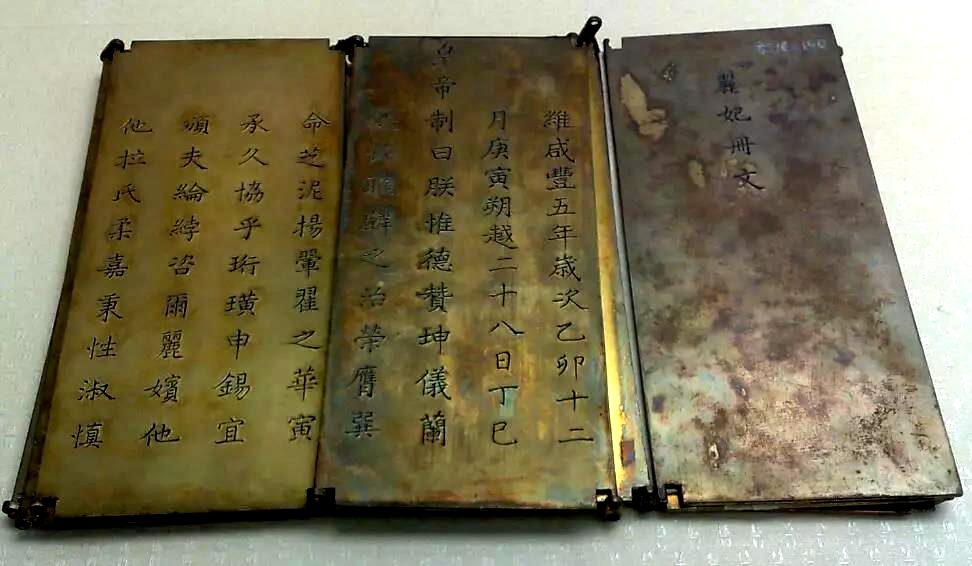 麗妃冊文
維咸豐五年歲次乙卯十二
月庚寅朔越二十八日丁巳
皇帝制曰朕惟德贊坤儀蘭
雎麟之治榮膺巽
命芝泥揚翬翟之華寅
承久協乎珩璜申錫宜
頒夫綸綍咨爾麗嬪他
他拉氏柔嘉秉性淑慎